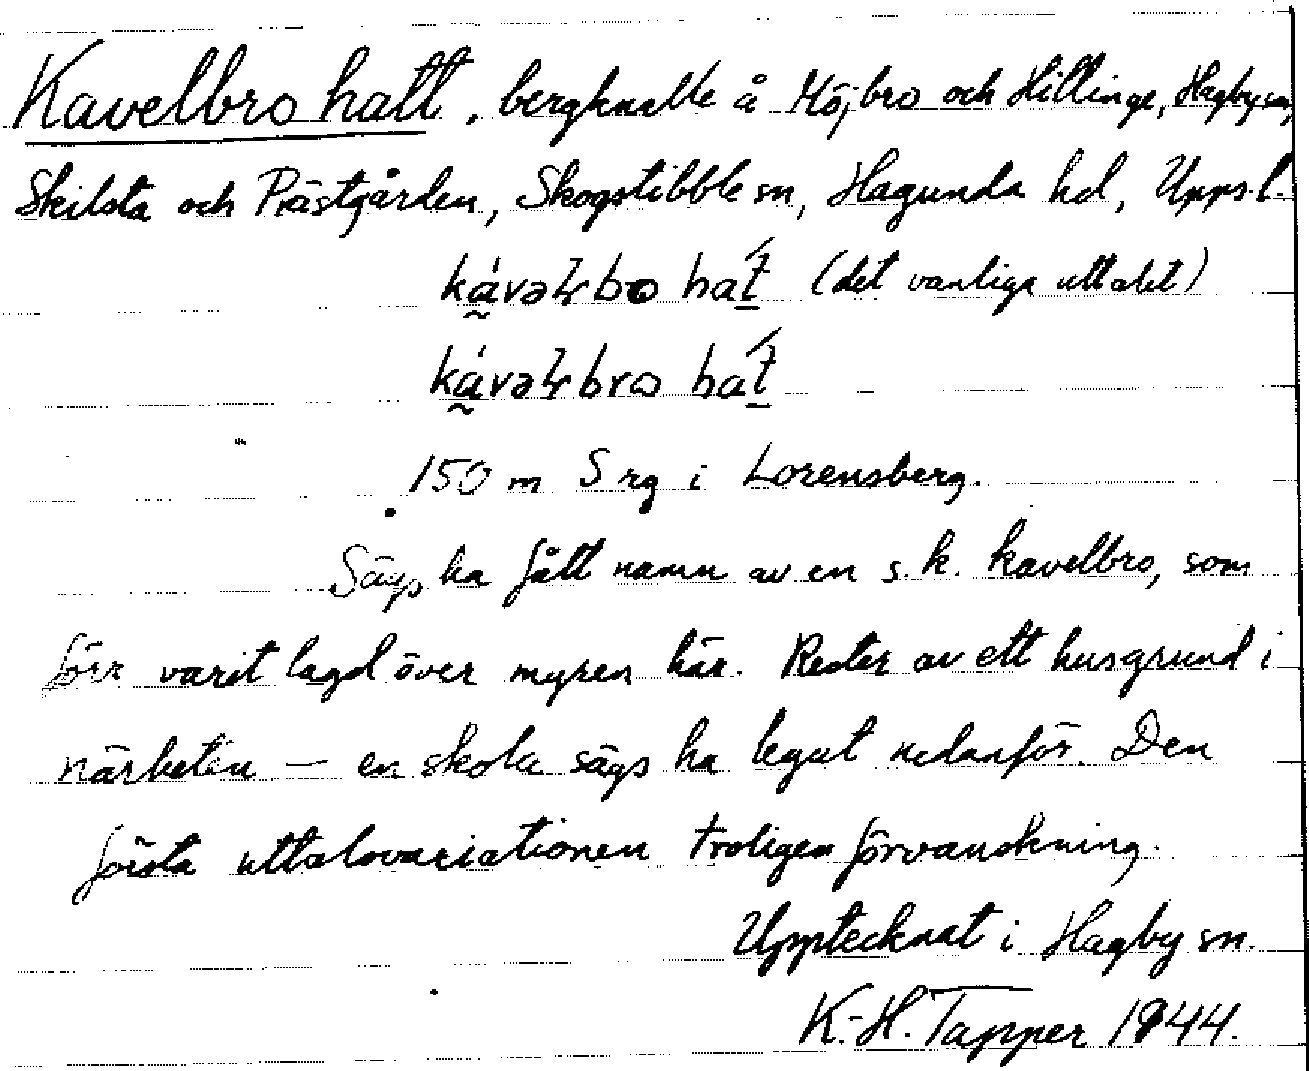 Kavelbro hatt, bergknalle å Möjbro och Hillinge, Hagby sn,
Skilsta och Prästgården, Skogstibble sn, Hagunda hd, Uppsl.
ká̰vəɽbo hat̠́ (det vanliga uttalet)
ká̰vəɽbro hat̠́
150 m S rg i Lorensberg.
Sägs ha fått namn av en s.k. kavelbro, som
förr varit lagd över myren här. Rester av ett husgrund i
närheten — en skola sägs ha legat nedanför. Den
första uttalsvariationen troligen förvanskning.
Upptecknat i Hagby sn.
K.-H. Tapper 1944.